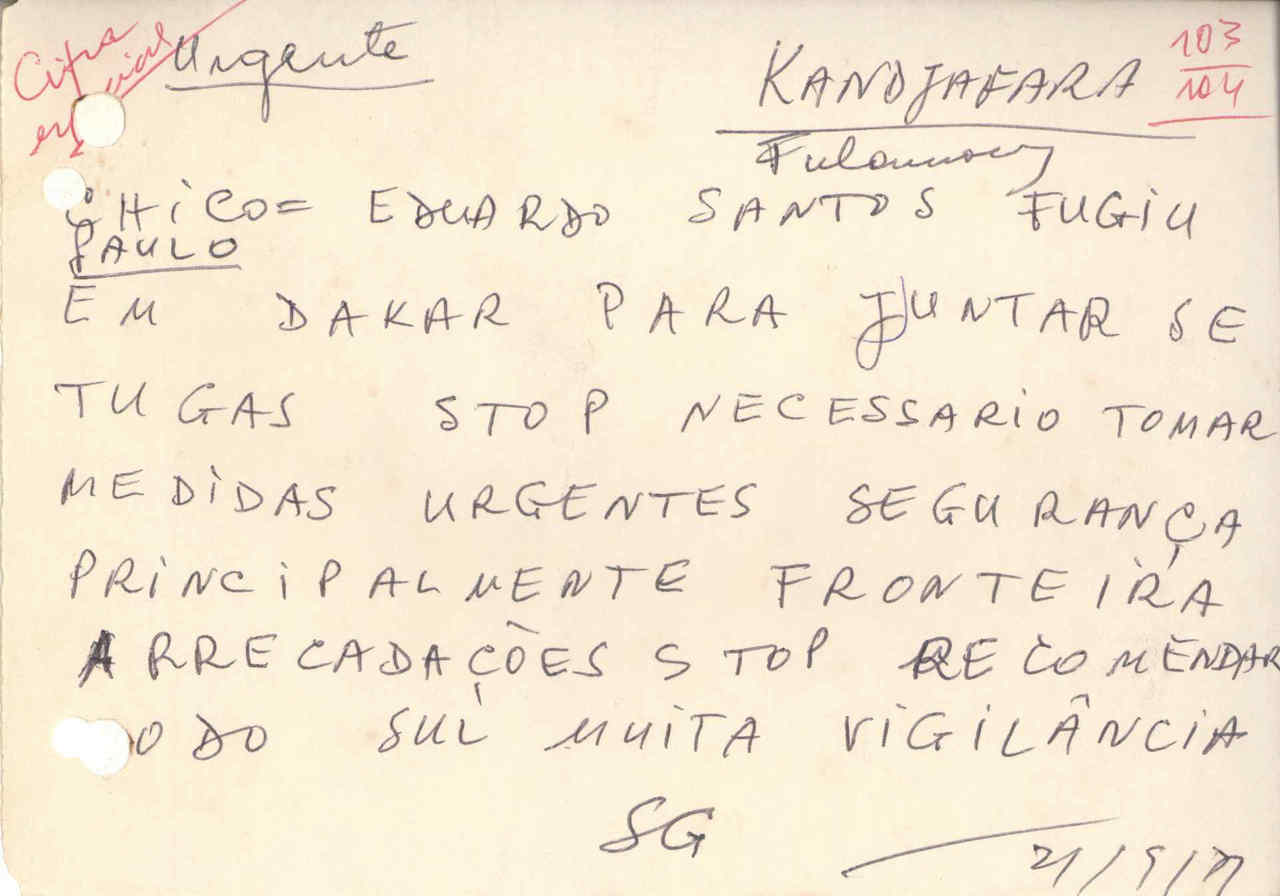 Cifra
Urgente
KANDJAFARA
103
104
Fulamory
CHICO= EDUARDO SANTOS FUGIU
PAULO
EM DAKAR PARA JUNTAR SE
TUGAS STOP NECESSARIO TOMAR
MEDIDAS URGENTES SEGURANÇA
PRINCIPALMENTE FRONTEIRA
ARRECADAÇÕES STOP RECOMENDAR
ODO SUL MUITA VIGILÂNCIA
SG